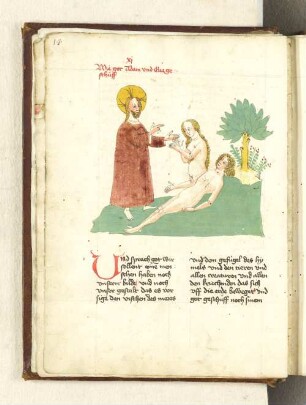 Wie got Adam und Eva ge-
schuff
Und sprach got wir
sollent ein men
schen haben noch
unserm bilde und noch
unser gestalt das er vor
sige den vischen des mers
und dem gefugel des hy
mels und den tieren und
allen creaturen und allen
den kriechenden das sich
uff die erde beweget und
got geschuff noch sinem